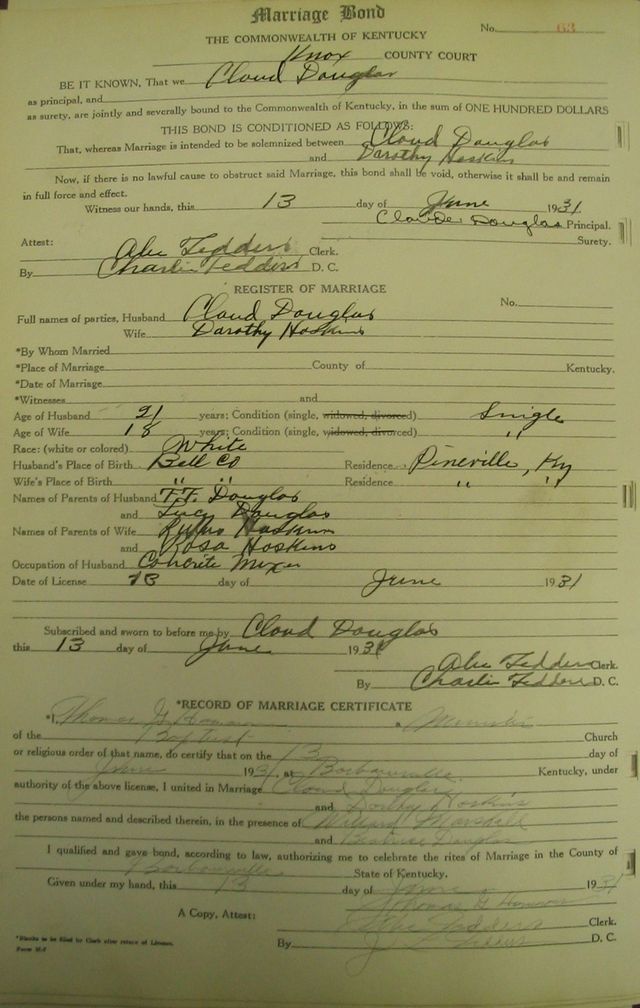 Marriage Bond
No. 63
THE COMMONWEALTH OF KENTUCKY
Knox COUNTY COURT
BE IT KNOWN, That we Cloud Douglas
as principal, and
as surety, are jointly and severally bound to the Commonwealth of Kentucky, in the sum of ONE HUNDRED DOLLARS
THIS BOND IS CONDITIONED AS FOLLOWS:
That, whereas Marriage is intended to be solemnized between Cloud Douglas
and Darothy Hoskins
Now, if there is no lawful cause to obstruct said Marriage, this bond shall be void, otherwise it shall be and remain
in full force and effect.
Witness our hands, this 13 day of June 1931
Claude Douglas Principal.
Surety.
Attest: Abe Tedders Clerk.
By Charlie Tedders D. C.
REGISTER OF MARRIAGE
No.
Full names of parties, Husband Cloud Douglas
Wife Darothy Hoskins
*By Whom Married
*Place of Marriage County of Kentucky.
*Date of Marriage
*Witnesses and
Age of Husband 21 years; Condition (single, widowed, divorced) Snigle
Age of Wife 18 years; Condition (single, widowed, divorced) "
Race: (white or colored) White
Husband's Place of Birth Bell Co Residence Pineville, Ky
Wife's Place of Birth " " Residence " "
Names of Parents of Husband T.T. Douglas
and Lucy Douglas
Names of Parents of Wife Rufus Hoskins
and Rosa Hoskins
Occupation of Husband Concrete Mixer
Date of License 13 day of June 1931
Subscribed and sworn to before me by Cloud Douglas
this 13 day of June 1931
Abe Tedders Clerk.
By Charlie Tedders D. C.
*RECORD OF MARRIAGE CERTIFICATE
*I, Thomas G. a Minister
of the Baptist Church
or religious order of that name, do certify that on the 13 day of
June 1931, at Barbourville Kentucky, under
authority of the above license, I united in Marriage Cloud Douglas
and Dorthy Hoskins
the persons named and described therein, in the presence of Willard
and Douglas
I qualified and gave bond, according to law, authorizing me to celebrate the rites of Marriage in the County of
Barbourville State of Kentucky.
Given under my hand, this 13 day of June 1931
Thomas G.
A Copy, Attest: Abe Tedders Clerk.
By D. C.
*Blanks to be filled by Clerk after return of License.